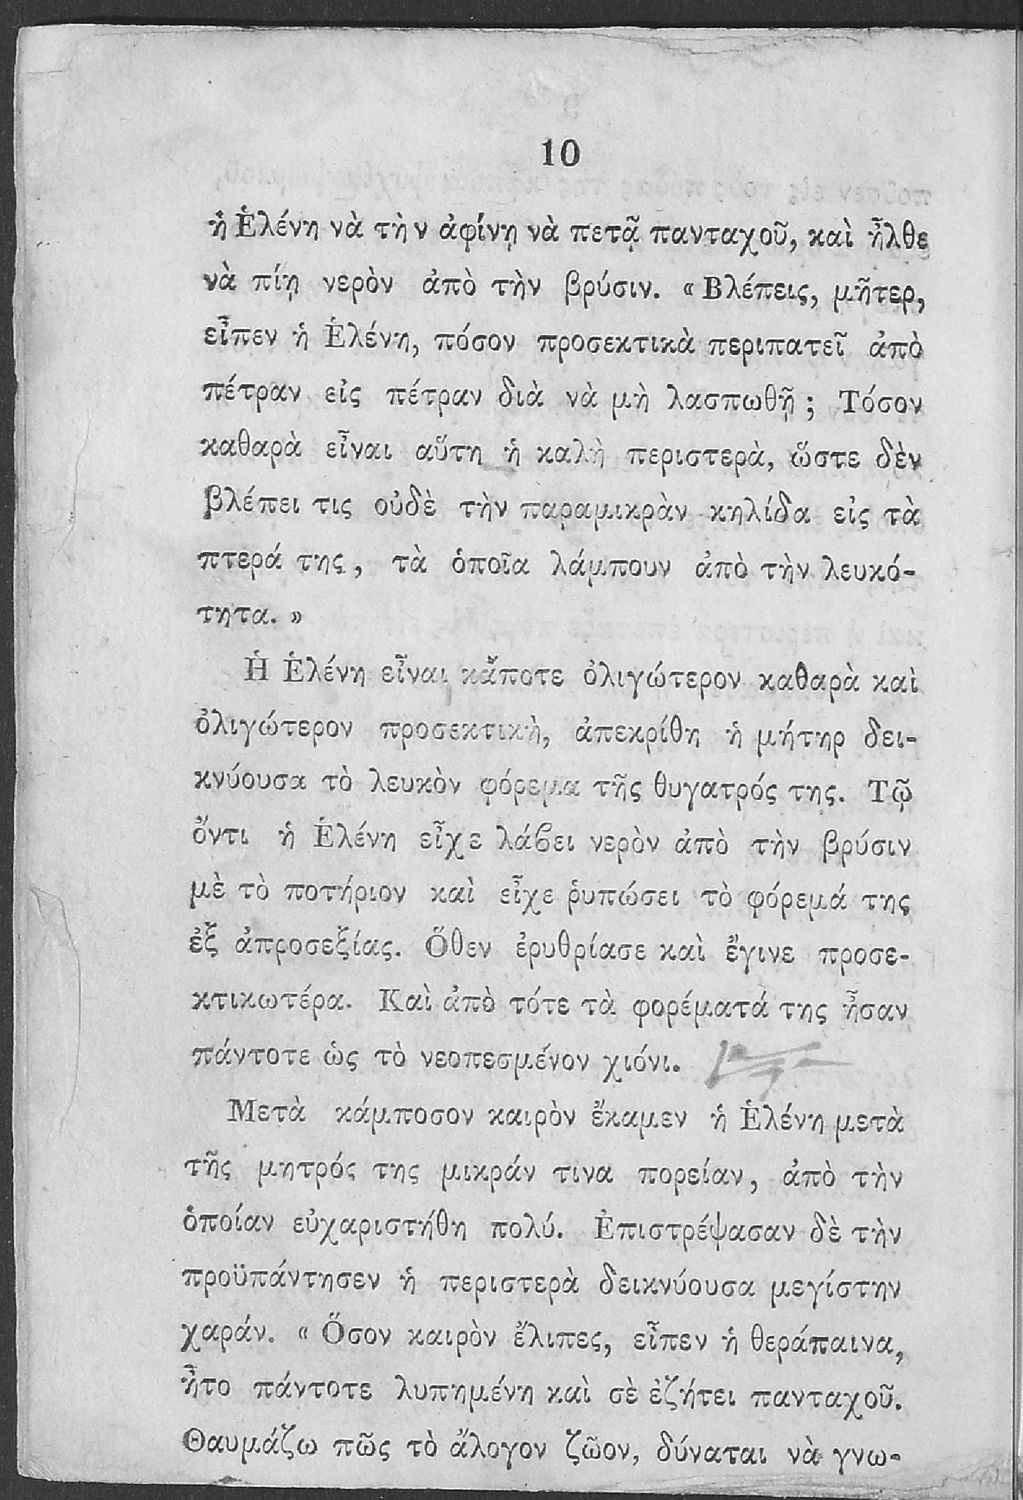 10
ἡ Ἑλένη νὰ τὴν ἀφίνῃ νὰ πετᾷ πανταχοῦ, καὶ ἦλθε
νὰ πίῃ νερὸν ἀπὸ τὴν βρύσιν. « Βλέπεις, μῆτερ,
εἶπεν ἡ Ἑλένη, πόσον προσεκτικὰ περιπατεῖ ἀπὸ
πέτραν εἰς πέτραν διὰ νὰ μὴ λασπωθῇ ; Τόσον
καθαρὰ εἶναι αὕτη ἡ καλὴ περιστερὰ, ὥστε δὲν
βλέπει τις οὐδὲ τὴν παραμικρὰν κηλίδα εἰς τὰ
πτερά της, τὰ ὁποῖα λάμπουν ἀπὸ τὴν λευκό-
τητα. »
Ἡ Ἑλένη εἶναι κἄποτε ὀλιγώτερον καθαρὰ καὶ
ὀλιγώτερον προσεκτικὴ, ἀπεκρίθη ἡ μήτηρ δει-
κνύουσα τὸ λευκὸν φόρεμα τῆς θυγατρός της. Τῷ
ὄντι ἡ Ἑλένη εἶχε λάϐει νερὸν ἀπὸ τὴν βρύσιν
μὲ τὸ ποτήριον καὶ εἶχε ῥυπώσει τὸ φόρεμά της
ἐξ ἀπροσεξίας. Ὅθεν ἐρυθρίασε καὶ ἔγινε προσε-
κτικωτέρα. Καὶ ἀπὸ τότε τὰ φορέματά της ἦσαν
πάντοτε ὡς τὸ νεοπεσμένον χιόνι.
Μετὰ κάμποσον καιρὸν ἔκαμεν ἡ Ἑλένη μετὰ
τῆς μητρός της μικράν τινα πορείαν, ἀπὸ τὴν
ὁποίαν εὐχαριστήθη πολύ. Ἐπιστρέψασαν δὲ τὴν
προϋπάντησεν ἡ περιστερὰ δεικνύουσα μεγίστην
χαράν. « Ὅσον καιρὸν ἔλιπες, εἶπεν ἡ θεράπαινα,
ἦτο πάντοτε λυπημένη καὶ σὲ ἐζήτει πανταχοῦ.
Θαυμάζω πῶς τὸ ἄλογον ζῶον, δύναται νὰ γνω-